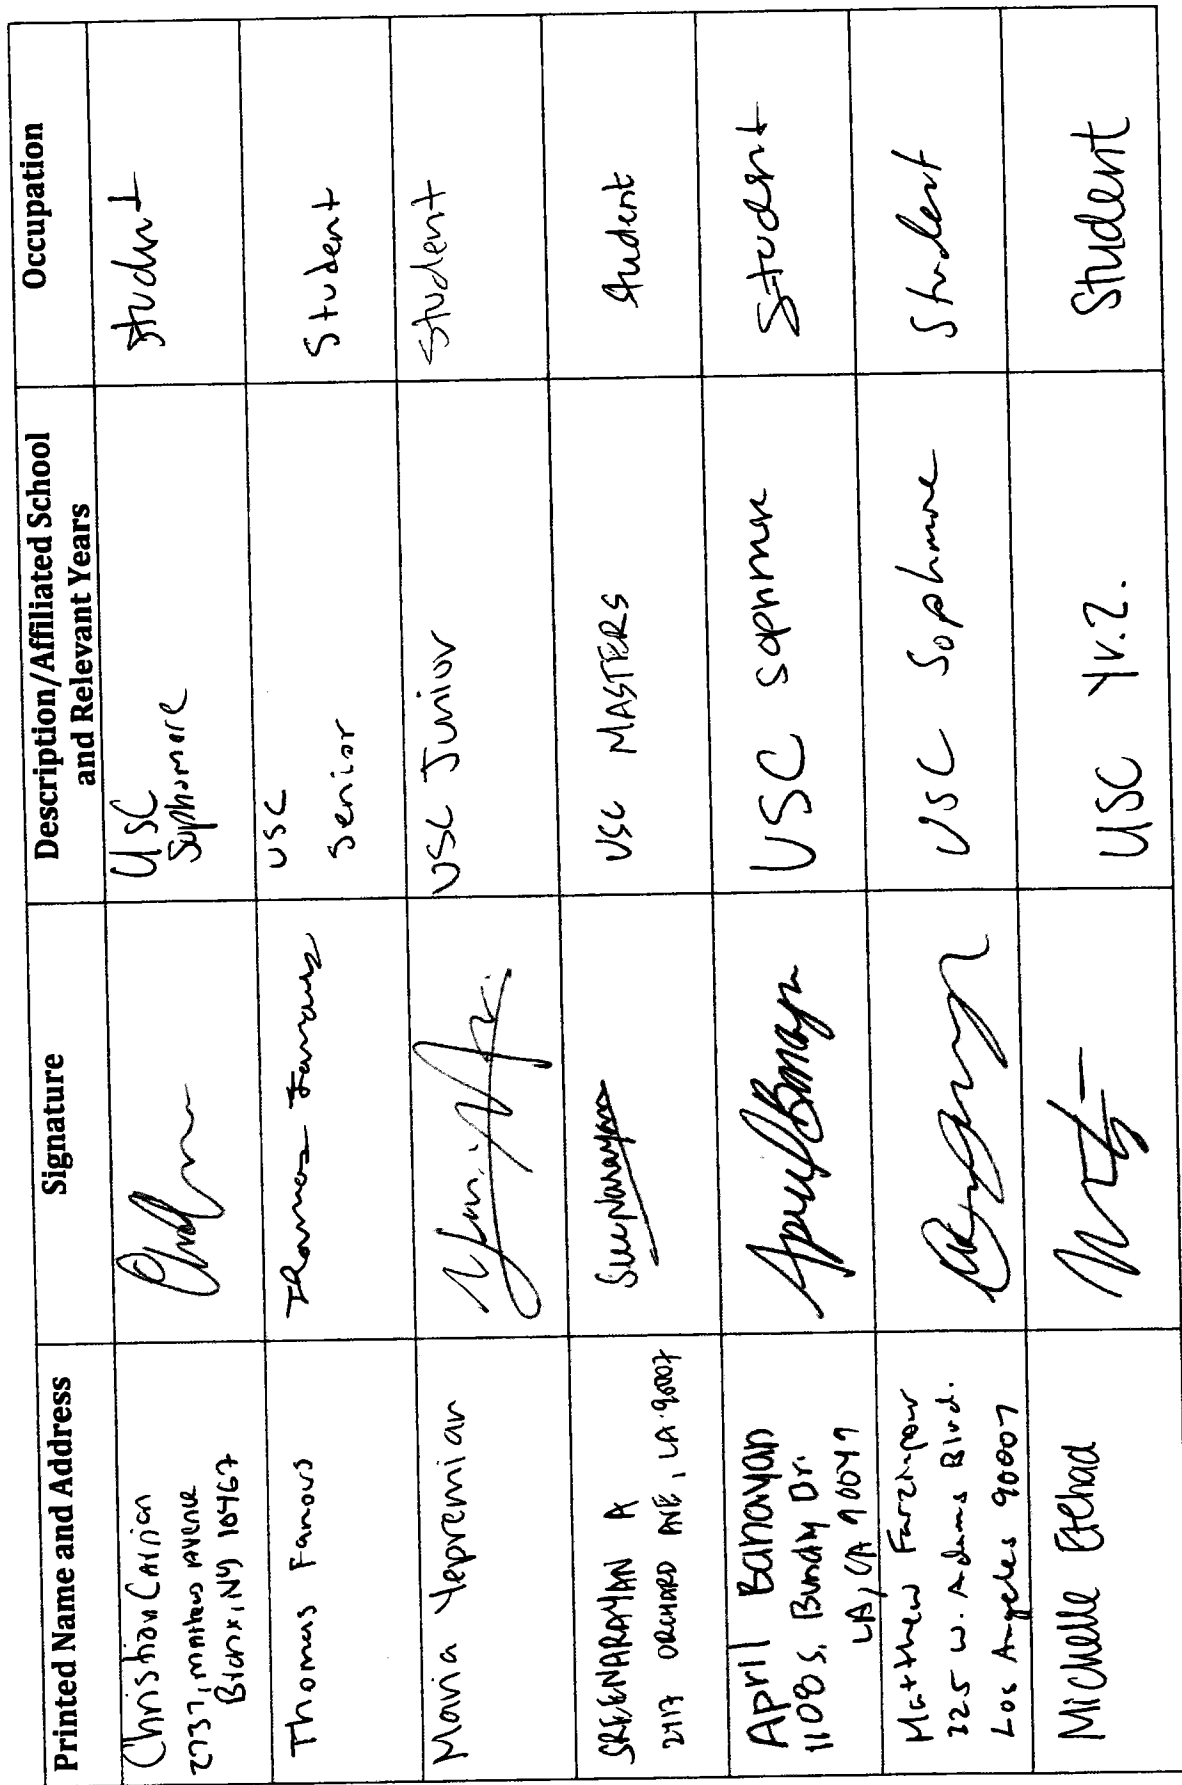 Printed Name and Address
Signature
Description/Affiliated School
and Relevant Years
Occupation
Christian
2737, Avenue
Bronx, NY 10467
USC
Sophomore
Student
Thomas Famous
Thomas Famous
USC
Senior
Student
Maria Yepremian
USC Junior
Student
SREENARAYAN A
2417 ORCHARD AVE, LA-90007
Sreenarayan
USC MASTERS
Student
April Banayan
110 S. Bundy Dr.
LA, CA 90049
April Banayan
USC Sophmore
Student
Matthew Farzinpour
325 W. Adams Blvd.
Los Angeles 90007
USC Sophmore
Student
Michelle Etehad
USC Yr. 2.
Student